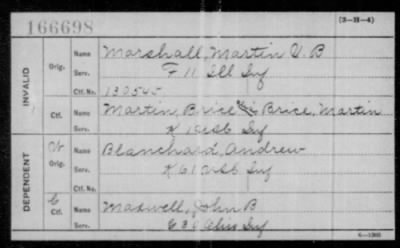 166698
(3-H-4)
INVALID
Orig. Name Marshall, Martin V. B
Serv. F 11 Ill Inf
Ctf. No. 130545
Ctf. Name Martin, Brice alias Brice, Martin
Serv. K
DEPENDENT
W Orig. Name Blanchard, Andrew
Serv. K 61 Inf
Ctf. No.
C Ctf. Name Maxwell, John B
Serv. Ohio Inf